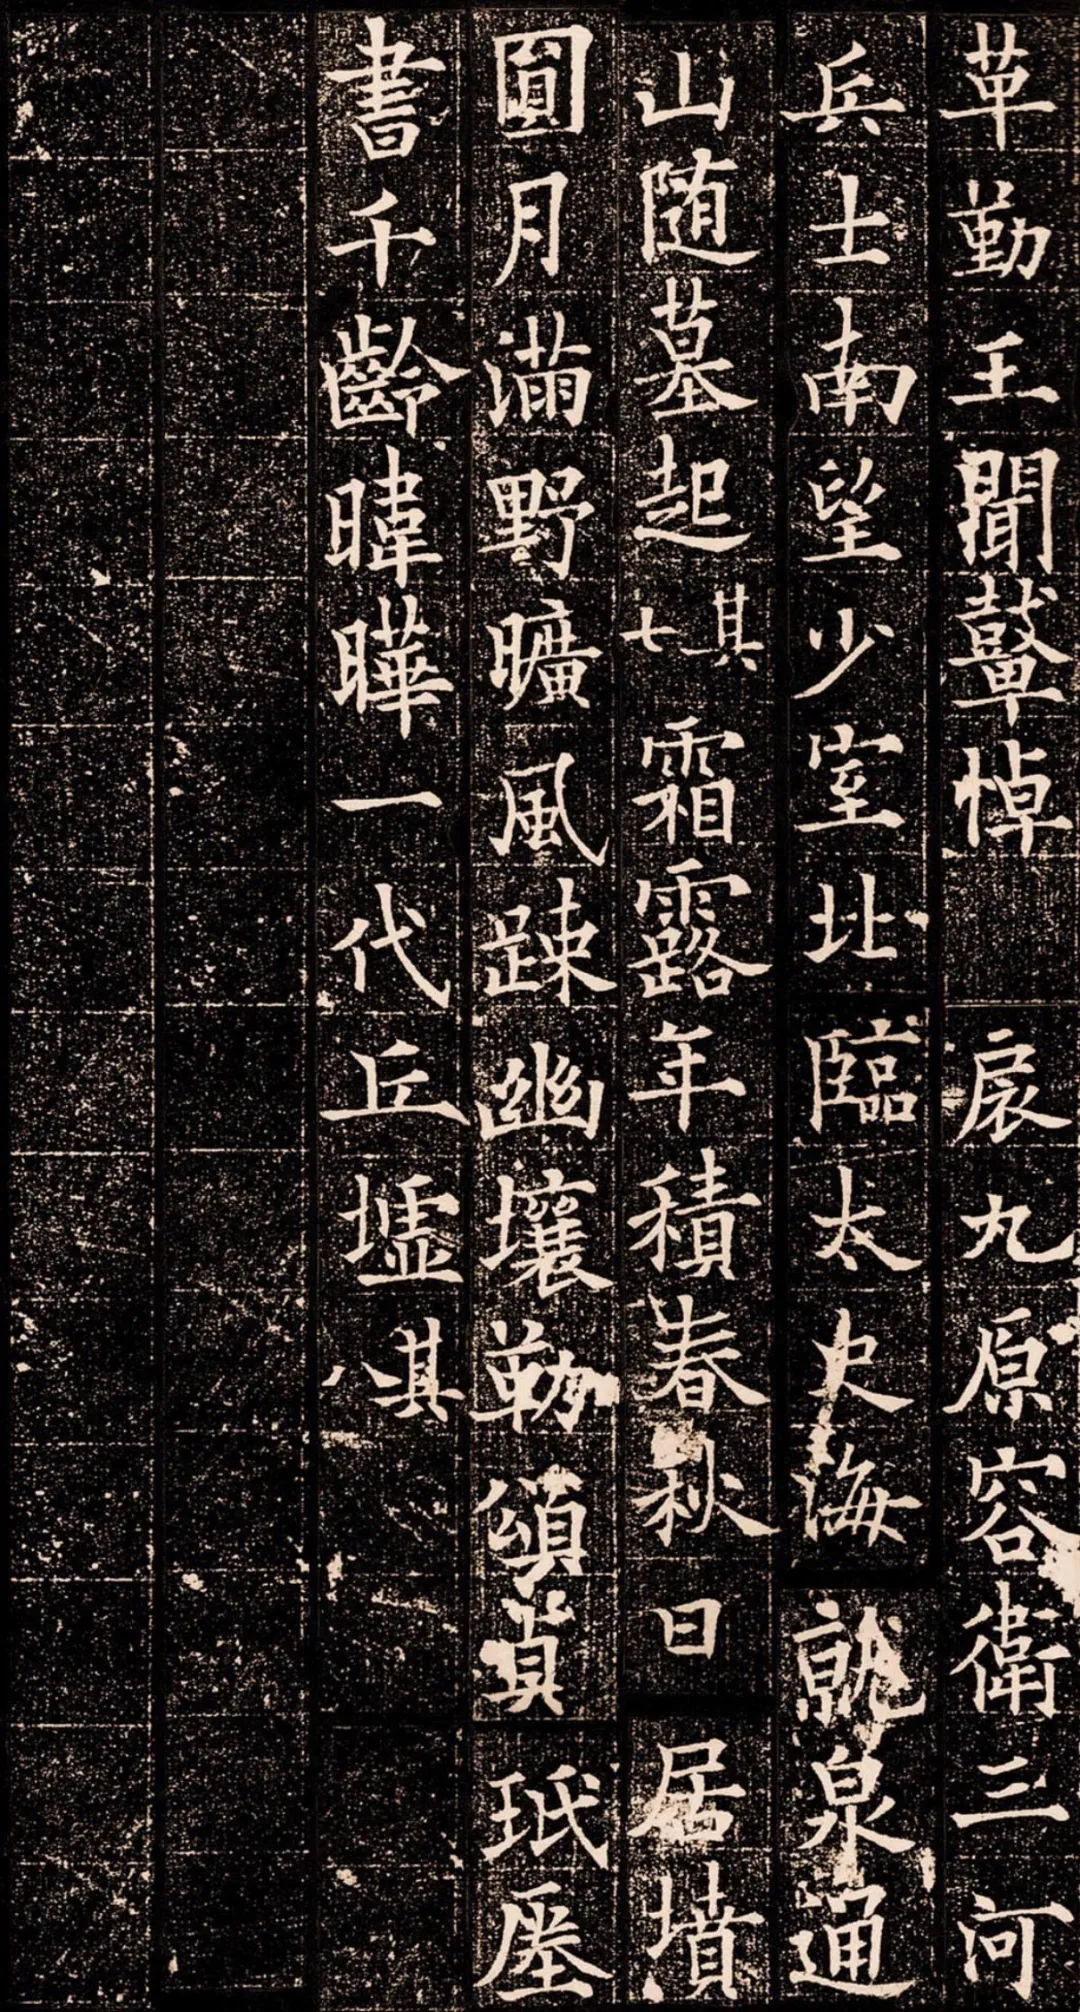 草勤王聞鼙悼 扆九原容衛三河
兵士南望少室北臨太史海就泉通
山随墓起其七霜露年積春秋日居墳
圓月滿野曠風踈幽壤勒頌貞珉屢
書千齡暐曄一代丘墟其八